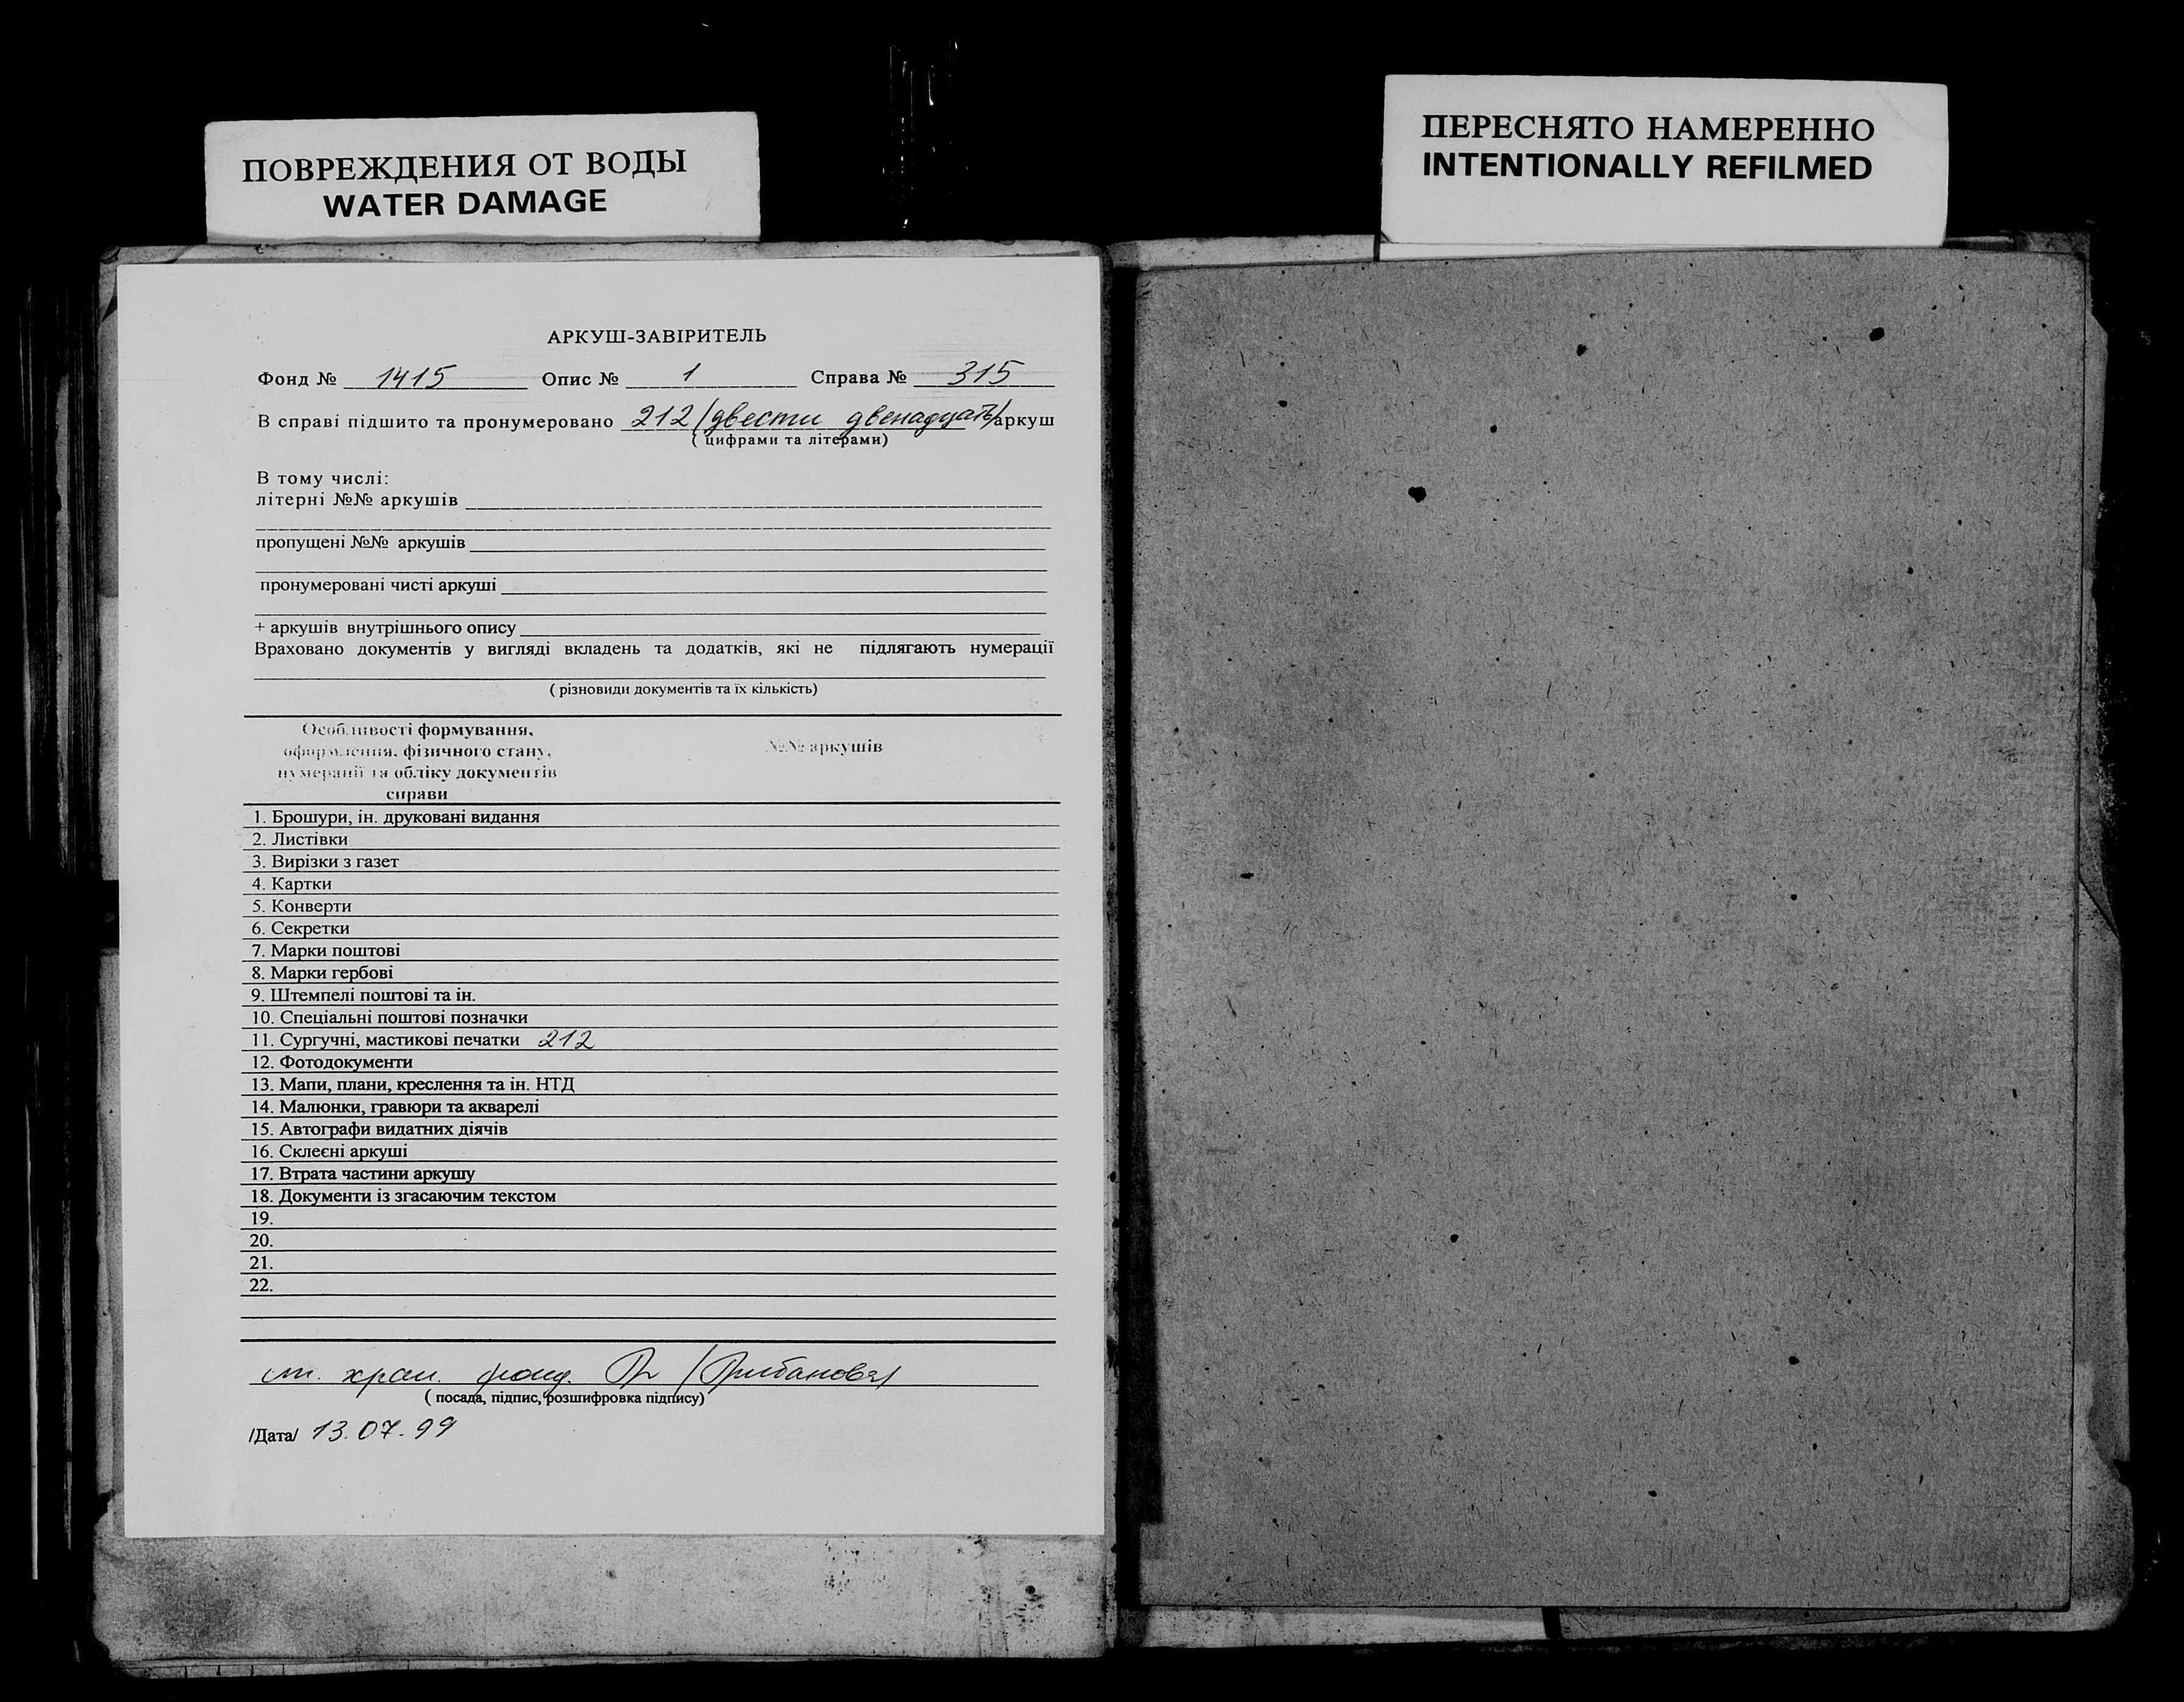 ПОВРЕЖДЕНИЯ ОТ ВОДЫ
WATER DAMAGE
ПЕРЕСНЯТО НАМЕРЕННО
INTENTIONALLY REFILMED
АРКУШ-ЗАВІРИТЕЛЬ
Фонд № 1415 Опис № 1 Справа № 315
В справі підшито та пронумеровано 212 (двести двенадцать) аркуш
( цифрами та літерами)
В тому числі:
літерні №№ аркушів
пропущені №№ аркушів
пронумеровані чисті аркуші
+ аркушів внутрішнього опису
Враховано документів у вигляді вкладень та додатків, які не підлягають нумерації
( різновиди документів та їх кількість)
Особливості формування,
оформлення, фізичного стану,
нумерації та обліку документів
справи
№№ аркушів
1. Брошури, ін. друковані видання
2. Листівки
3. Вирізки з газет
4. Картки
5. Конверти
6. Секретки
7. Марки поштові
8. Марки гербові
9. Штемпелі поштові та ін.
10. Спеціальні поштові позначки
11. Сургучні, мастикові печатки 212
12. Фотодокументи
13. Мапи, плани, креслення та ін. НТД
14. Малюнки, гравюри та акварелі
15. Автографи видатних діячів
16. Склеєні аркуші
17. Втрата частини аркушу
18. Документи із згасаючим текстом
19.
20.
21.
22.
ст. хран. фонд.
( посада, підпис, розшифровка підпису)
/Дата/ 13.07.99